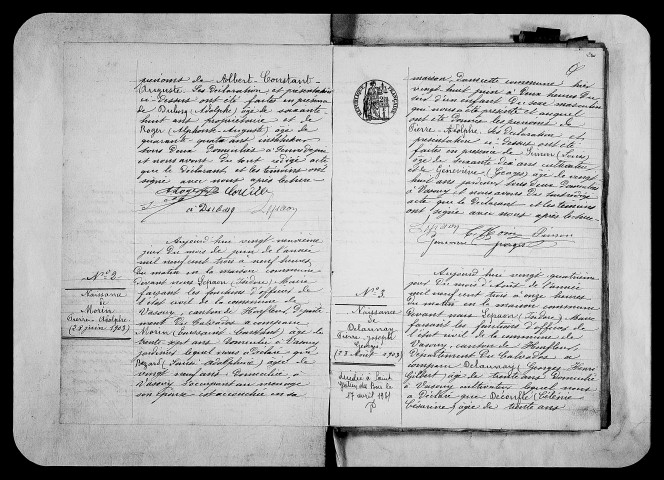 prénoms de Albert-Constant-
Auguste. Les déclaration et présentation
ci-dessus ont été faites en présence
de Dubosq (Adolphe) âgé de soixante
huit ans propriétaire et de
Roger (Alphonse Auguste) âgé de
quarante quatre ans instituteur
tous deux domiciliés à
et nous avons du tout rédigé acte
que le déclarant et les témoins ont
signé avec nous après lecture
ARoger
a Dubosq Lepaon
N° 2
Naissance
de
Morin
Pierre-Adolphe
(28 juin 1903)
Aujourd'hui vingt neuvième
jour du mois de juin de l'année
mil neuf cent trois à neuf heures
du matin en la maison commune
devant nous Lepaon (Isidore) Maire
faisant les fonctions d'officier de
l'état civil de la commune de
Vasouy, canton de Honfleur, Départe
ment du Calvados a comparu
Morin (Toussaint ) âgé de
trente sept ans domicilié à Vasouy
jardinier lequel nous a déclaré que
Adolphine) âgée de
vingt neuf ans domiciliée à
Vasouy s'occupant au ménage
son épouse est accouchée en sa
maison, dans cette commune, hier
vingt huit juin à deux heures du
soir d'un enfant du sexe masculin
qui nous a été présenté et auquel
ont été donnés les prénoms de
Pierre-Adolphe. Les déclaration et
présentation ci-dessus ont été
faites en présence de (Louis)
âgé de soixante dix ans cultivateur
et (Georges) âgé de vingt
huit ans jardinier tous deux domiciliés
à Vasouy et nous avons du tout rédigé
acte que le déclarant et les témoins
ont signé avec nous après lecture.
Lepaon T. Morin
N° 3
Naissance
de
Delaunay
Pierre Joseph
Georges
(23 Août 1903)
décédée à Saint
le
17 avril 1981
Aujourd'hui vingt quatrième
jour du mois d'Août de l'année
mil neuf cent trois à onze heures
du matin en la maison commune
devant nous Lepaon (Isidore) Maire
faisant les fonctions d'officier de
l'état civil de la commune de
Vasouy, canton de Honfleur
Département du Calvados a
comparu Delaunay (Georges Henri
Gilbert) âgé de trente ans domicilié
à Vasouy cultivateur lequel nous
a déclaré que Découfle (Célénie
Césarine) âgée de trente ans